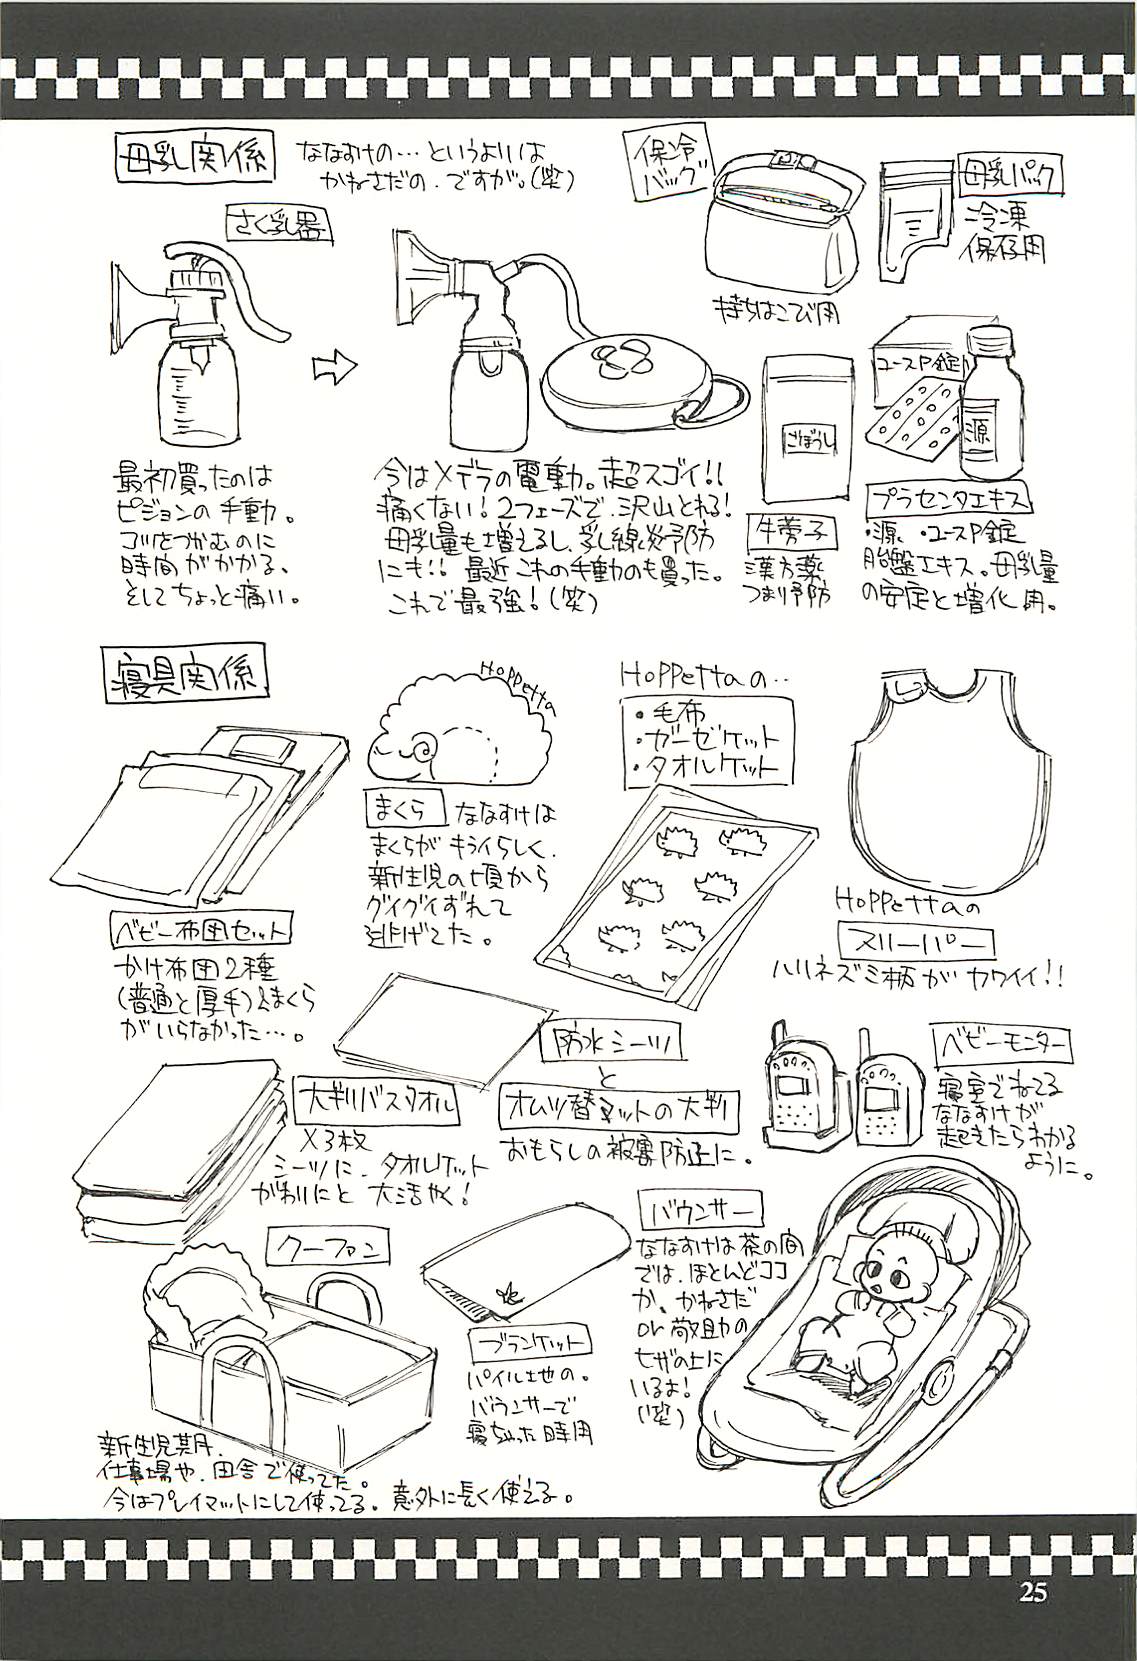 母乳関係
ななすけの…というよりは
かねさだの.ですが。(笑)
さく乳器
最初買ったのは
ピジョンの手動。
コツをつかむのに
時間がかかる、
そしてちょっと痛い。
今はメデラの電動。超スゴイ!!
痛くない!2フェーズで、沢山とれる!
母乳量も増えるし、乳線炎予防
にも!!最近これの手動のも買った。
これで最強!(笑)
保冷
バッグ
持ちはこび用
母乳パック
冷凍
保存用
ごぼうし
牛蒡子
漢方薬
つまり予防
ユースP錠
源
プラセンタエキス
・源、・ユースP錠
胎盤エキス。母乳量
の安定と増化用。
寝具関係
ベビー布団セット
かけ布団2種
(普通と厚手)&まくら
がいらなかった…。
Hoppetta
まくら
ななすけは
まくらがキライらしく、
新生児の頃から
グイグイずれて
逃げてた。
Hoppettaの‥
・毛布
・ガーゼケット
・タオルケット
Hoppettaの
スリーパー
ハリネズミ柄がカワイイ!!
防水シーツ
と
オムツ替マットの大判
おもらしの被害防止に。
ベビーモニター
寝室でねてる
ななすけが
起きたらわかる
ように。
大判バスタオル
×3枚
シーツに、タオルケット
がわりにと大活やく!
クーファン
新生児期.
仕事場や、田舎で使ってた。
今はプレイマットにして使ってる。意外に長く使える。
ブランケット
パイル地の。
バウンサーで
寝ちゃった時用
バウンサー
ななすけは茶の間
では、ほとんどココ
か、かねさだ
or 敬助の
ヒザの上に
いるよ!
(笑)
25